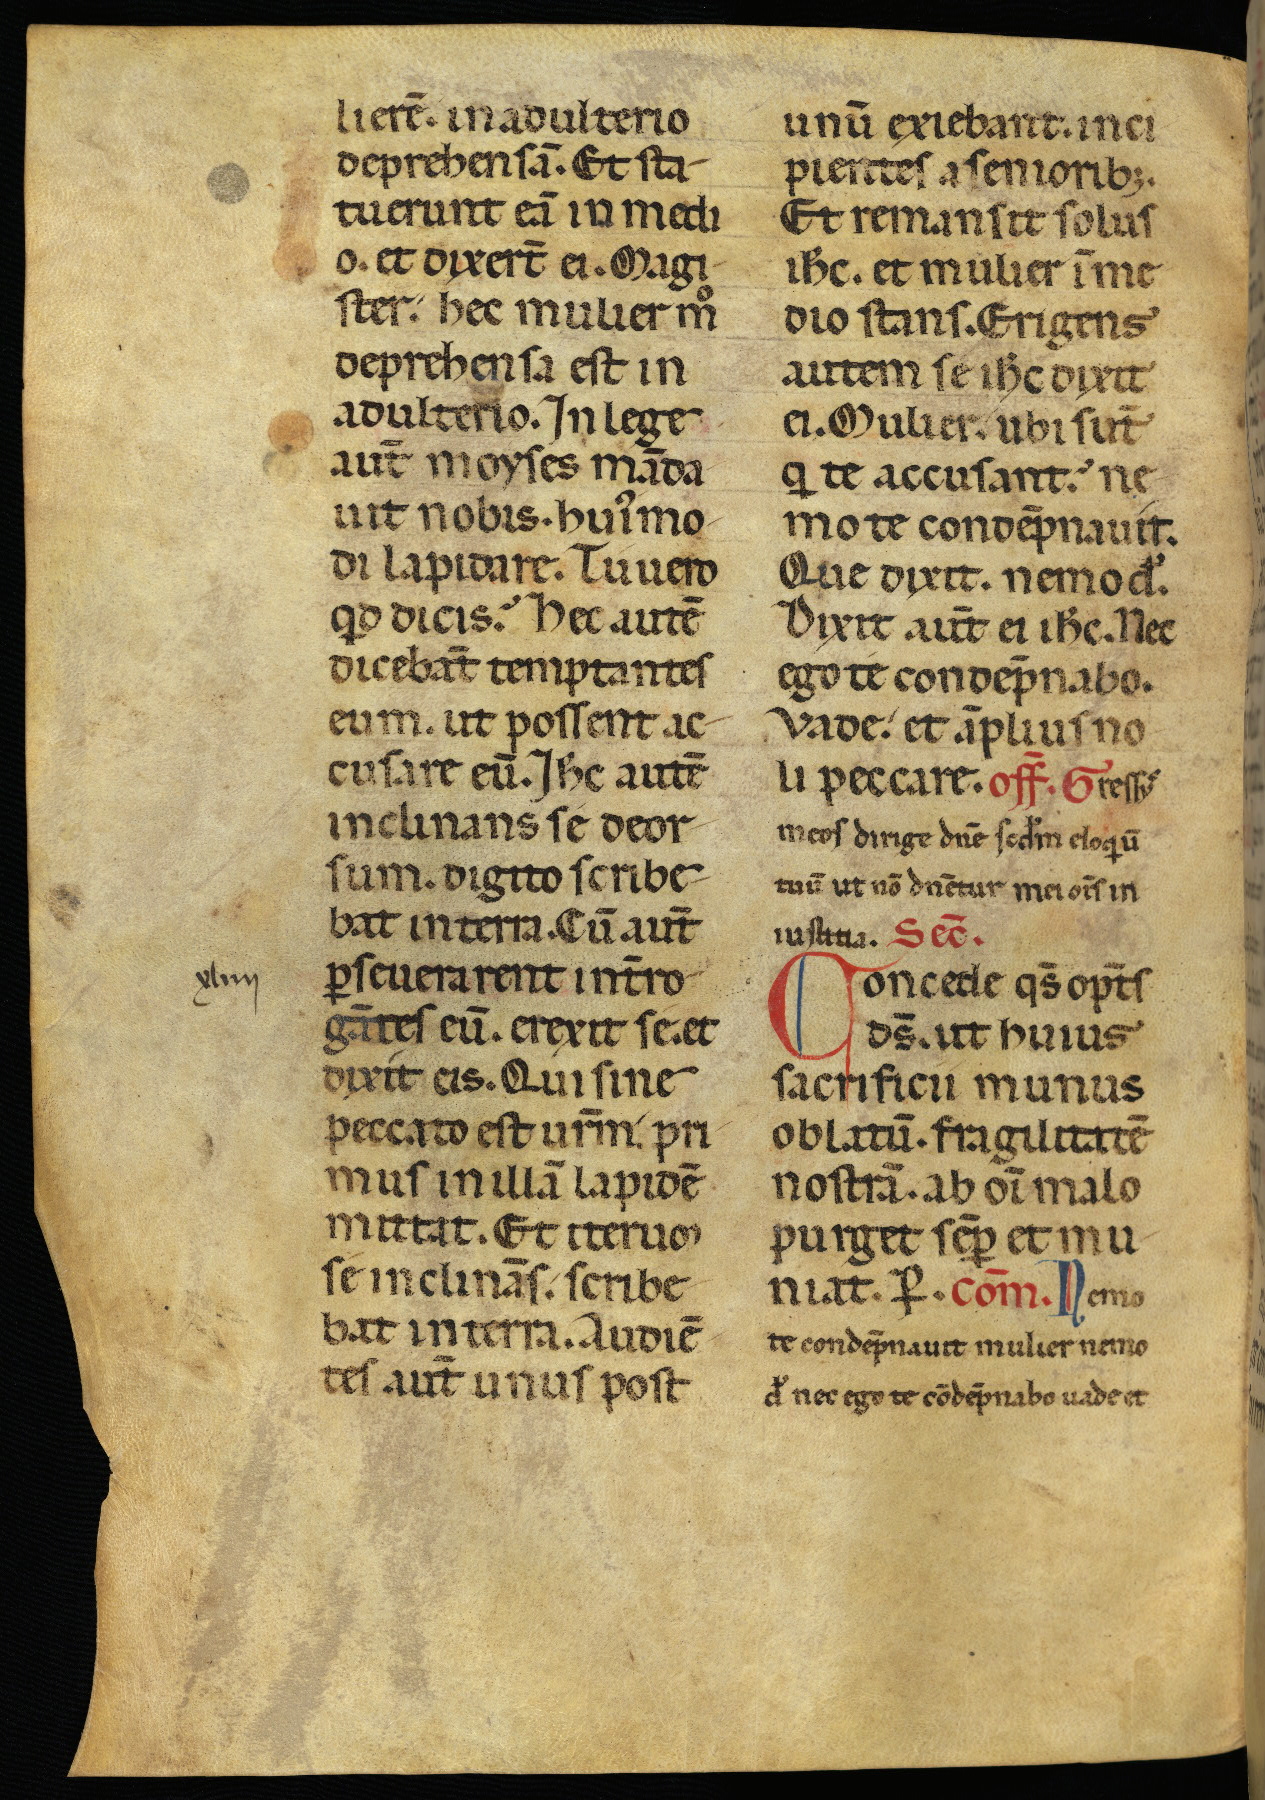 lierē. in adulterio
deprehensā. Et sta-
tuerunt eā in medi
o. et dixert̄ ei. Magi-
ster. hec mulier mͦ
deprehensa est in
adulterio. In lege
aut̄ moyses māda
uit nobis. huiꝰmo-
di lapidare. Tu uero
qd dicis. Hec autē
dicebat̄ temptantes
eum. ut possent ac-
cusare eū. Ihc autē
inclinans se deor-
sum. digito scribe-
bat in terra. Cū aut̄
xliiii
ꝑseuerarent int̄ro-
gātes eū. erexit se. et
dixit eis. Qui sine
peccato est ur̄m. pri-
mus in illā lapidē
mittat. Et iterum
se inclinās. scribe-
bat in terra. Audiē-
tes aut̄ unus post
unū exiebant. inci
pientes a seniorib;.
Et remansit solus
ihc. et mulier ī me
dio stans. Erigens
autem se ihc dixit
ei. Mulier. ubi sūt
q te accusant. ne-
mo te condēpnauit.
Que dixit. nemo d̄.
Dixit aut̄ ei ihc. Nec
ego te condēpnabo.
Vade. et āplius no
li peccare. off̄. Gressꝰ
meos dirige dn̄e scdm eloquiū
tuū ut nō dn̄etur mei oīs in
iustitia. Sec̄.
Concede qs̄ opt̄s
ds̄. ut huius
sacrificii munus
oblatū. fragilitatē
nostrā. ab oī malo
purget sēꝑ et mu-
niat. P̄. com̄. Nemo
te condēpnauit mulier nemo
d̄ nec ego te cōdēpnabo uade et